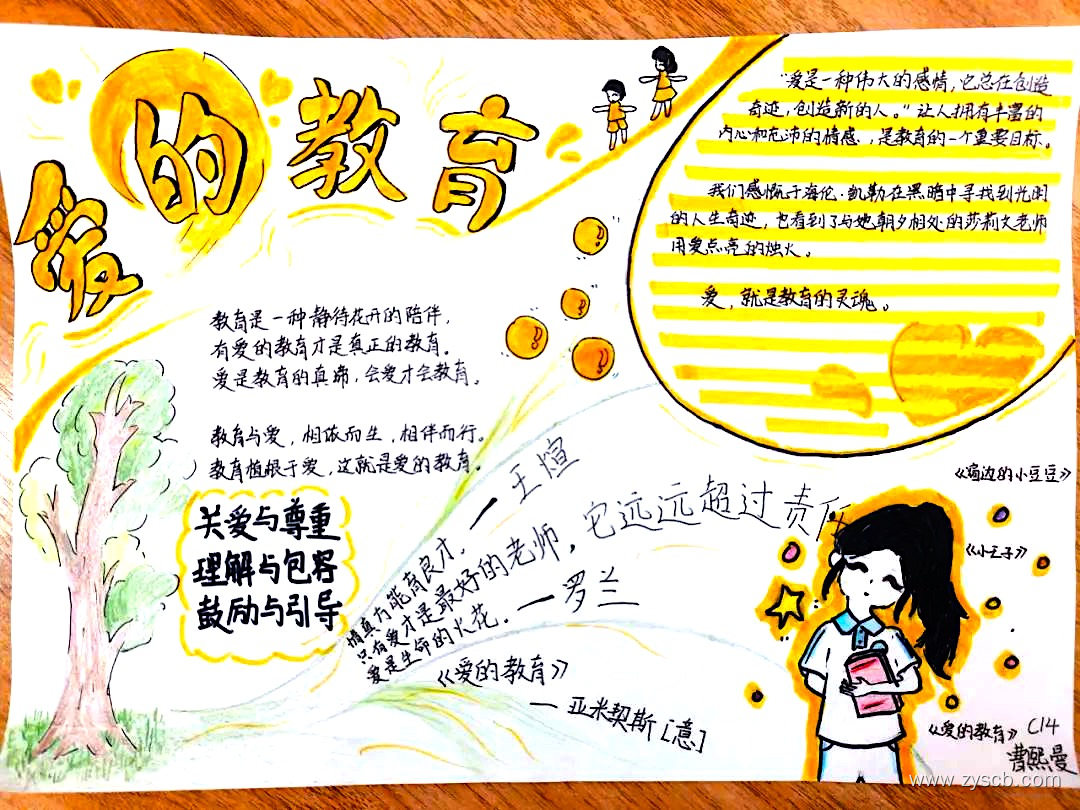 爱的教育
"爱是一种伟大的感情,它总在创造
奇迹,创造新的人。"让人拥有丰富的
内心和充沛的情感,是教育的一个重要目标。
我们感慨于海伦·凯勒在黑暗中寻找到光明
的人生奇迹,也看到了与她朝夕相处的莎莉文老师
用爱点亮的烛火。
爱,就是教育的灵魂。
教育是一种静待花开的陪伴,
有爱的教育才是真正的教育。
爱是教育的真谛,会爱才会教育。
教育与爱,相依而生,相伴而行。
教育植根于爱,这就是爱的教育。
关爱与尊重
理解与包容
鼓励与引导
情真方能育良才。—王煊
只有爱才是最好的老师,它远远超过责任
爱是生命的火花。—罗兰
《爱的教育》
— 亚米契斯[意]
《窗边的小豆豆》
《小王子》
《爱的教育》
C14
曹熙曼
www.zyscb.com